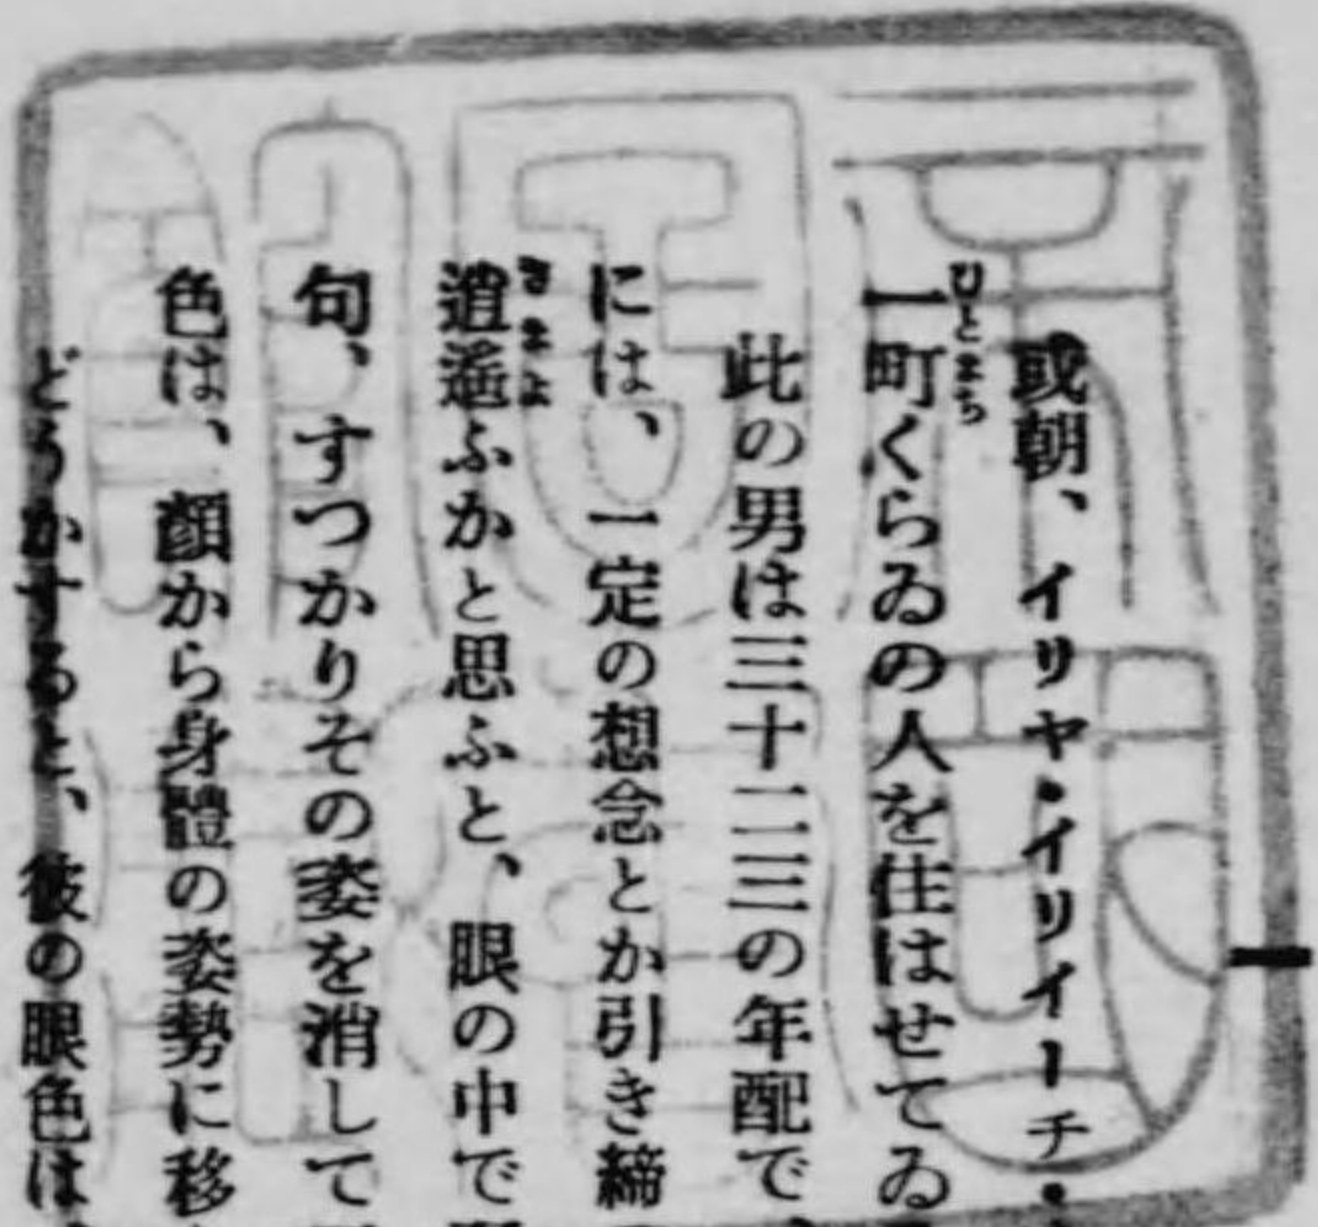 或朝、イリヤ・イリイーチ・
一町くらゐの人を住はせてゐ
ひとまち
此の男は三十二三の年配で、
には、一定の想念とか引き締
逍遙ふかと思ふと、眼の中で
さまよ
句、すつかりその姿を消して
色は、顏から身體の姿勢に移
どうかすると、彼の眼色は、